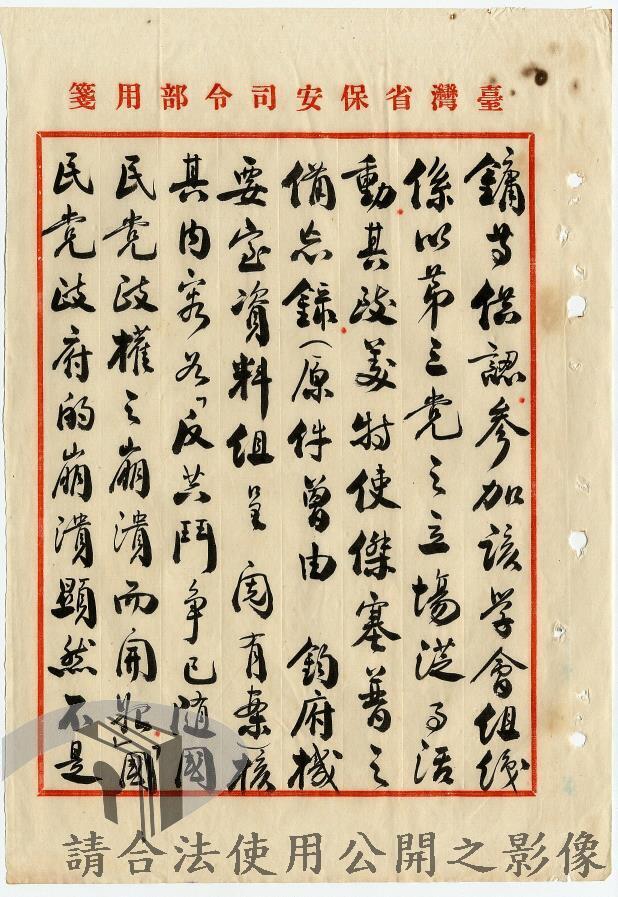 臺灣省保安司令部用箋
鏞等供認參加該学會組织
係以第三党之立場從事活
動其致美特使傑塞普之
備忘録(原件曾由 鈞府機
要室資料組呈 閲有案)核
其内容为「反共鬥争已随國
民党政權之崩潰而開始」「國
民党政府的崩潰顕然不是
請合法使用公開之影像